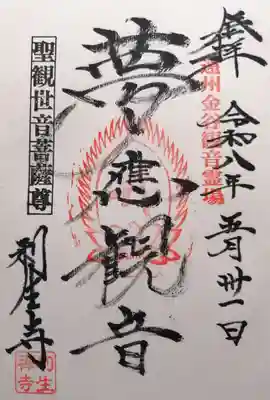 奉拝
遠州金谷観音霊場
令和八年
五月卅一日
夢應観音
聖観世音菩薩尊
利生寺